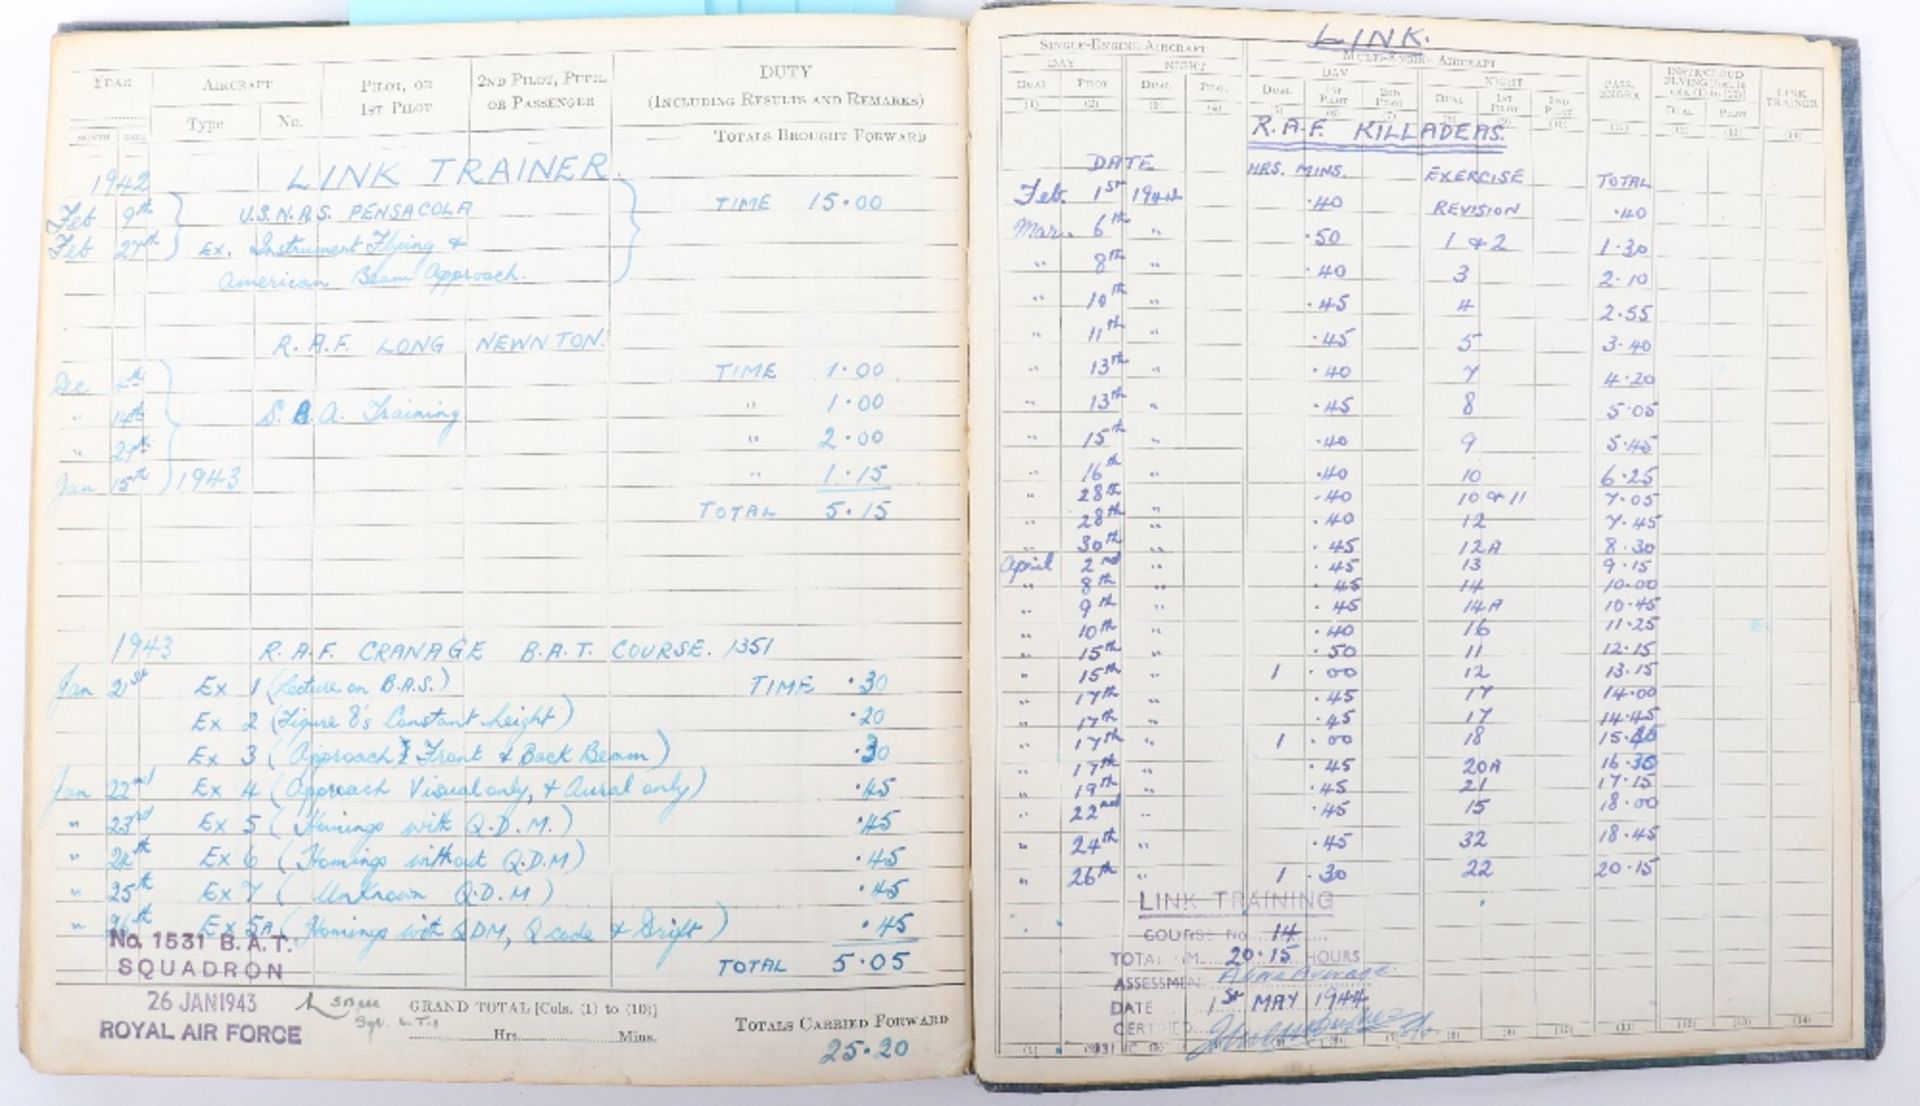 YEAR AIRCRAFT PILOT, OR 1ST PILOT 2ND PILOT, PUPIL OR PASSENGER DUTY (INCLUDING RESULTS AND REMARKS)
MONTH DATE Type No. TOTALS BROUGHT FORWARD
1942 LINK TRAINER.
Feb 9th U.S.N.A.S. PENSACOLA TIME 15.00
Feb 27th Ex. Instrument Flying &
American Beam Approach.
R.A.F. LONG NEWNTON.
Dec TIME 1.00
" 14th S.B.A. Training " 1.00
" " 2.00
Jan 15th 1943 " 1.15
TOTAL 5.15
1943 R.A.F. CRANAGE B.A.T. COURSE. 1351
Jan 21st Ex 1 (Lecture on B.A.S.) TIME .30
Ex 2 (Figure 8's Constant height) .20
Ex 3 (Approach Front & Back Beam) .30
Jan 22nd Ex 4 (Approach Visual only, & Aural only) .45
" 23rd Ex 5 (Homings with Q.D.M.) .45
" 24th Ex 6 (Homings without Q.D.M) .45
" 25th Ex 7 (Unknown Q.D.M) .45
" 26th Ex 5A (Homings with QDM, Q code & Drift) .45
No. 1531 B.A.T.
SQUADRON
TOTAL 5.05
26 JAN 1943
ROYAL AIR FORCE
GRAND TOTAL [Cols. (1) to (10)]
Hrs. Mins.
TOTALS CARRIED FORWARD
25.20
LINK.
SINGLE-ENGINE AIRCRAFT MULTI-ENGINE AIRCRAFT PASSENGER INSTR/CLOUD FLYING [Incl. in cols. (1) to (10)] LINK TRAINER
DAY NIGHT DAY NIGHT
DUAL PILOT DUAL PILOT DUAL 1ST PILOT 2ND PILOT DUAL 1ST PILOT 2ND PILOT DUAL PILOT
(1) (2) (3) (4) (5) (6) (7) (8) (9) (10) (11) (12) (13) (14)
R.A.F. KILLADEAS.
DATE HRS. MINS. EXERCISE TOTAL
Feb. 1st 1944 .40 REVISION .40
Mar. 6th " .50 1 & 2 1.30
" 8th " .40 3 2.10
" 10th " .45 4 2.55
" 11th " .45 5 3.40
" 13th " .40 7 4.20
" 13th " .45 8 5.05
" 15th " .40 9 5.45
" 16th " .40 10 6.25
" 28th " .40 10 & 11 7.05
" 28th " .40 12 7.45
" 30th " .45 12A 8.30
April 2nd " .45 13 9.15
" 8th " .45 14 10.00
" 9th " .45 14A 10.45
" 10th " .40 16 11.25
" 15th " .50 11 12.15
" 15th " 1.00 12 13.15
" 17th " .45 17 14.00
" 17th " .45 17 14.45
" 17th " 1.00 18
" 17th " .45 20A 16.30
" 19th " .45 21 17.15
" 22nd " .45 15 18.00
" 24th " .45 32 18.45
" 26th " 1.30 22 20.15
LINK TRAINING
COURSE No. 14
TOTAL 20.15 HOURS
ASSESSMEN Above Average.
DATE 1st MAY 1944
CERTIFIED